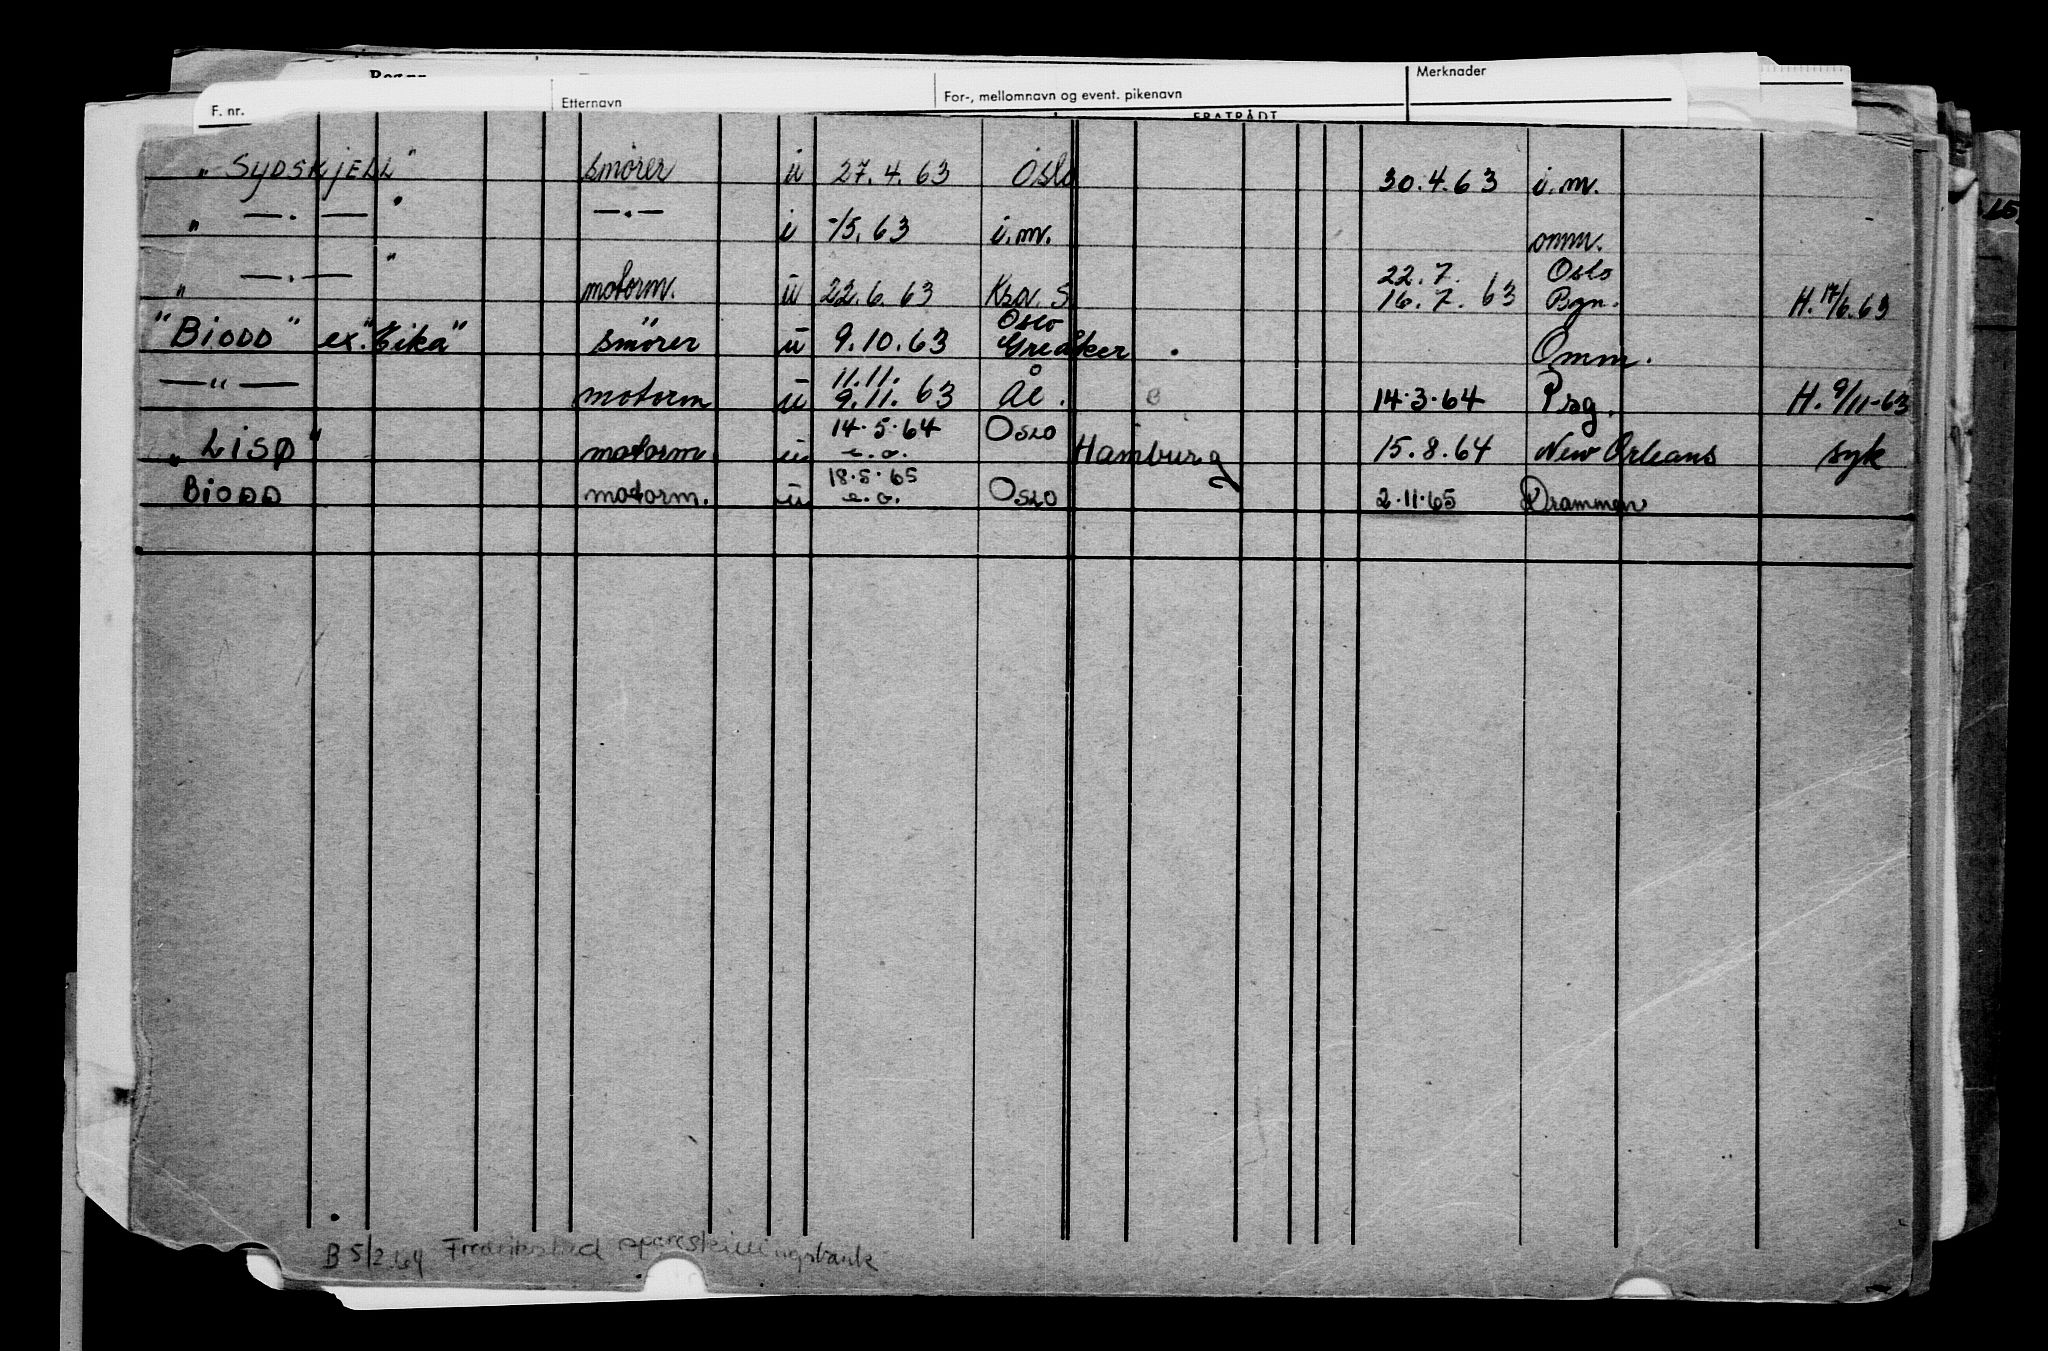 F. nr. Etternavn For-, mellomnavn og event. pikenavn Merknader
FRATRÅDT
"SYDSKJELL" smører u 27.4.63 Oslo 30.4.63 i.m.
" —.— " —.— i -/5.63 i.m. omm.
" —.— " motorm. u 22.6.63 Kra. S 22.7. Oslo
16.7.63 Bgn. H. 17/6.63
"Biodd" ex. "Eika" smører u 9.10.63 Oslo
Greåker. Omm.
— " — motorm u 11.11.
9.11.63 Ål. 14.3.64 Prg. H. 9/11-63
"LISØ" motorm u 14.5.64
e.o. Oslo Hamburg 15.8.64 New Orleans syk
BIODD motorm. u 18.5.65
e.o. Oslo 2.11.65 Drammen
B 5/2.64 Fredrikstad spareskillingsbank